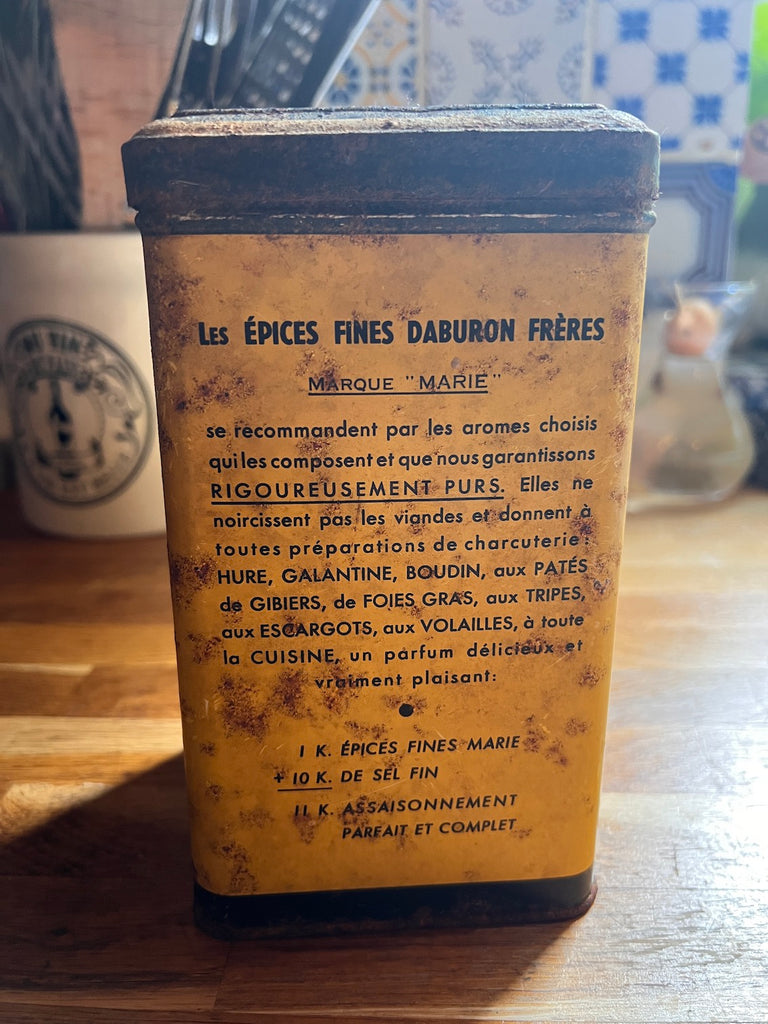 Les ÉPICES FINES DABURON FRÈRES
MARQUE "MARIE"
se recommandent par les aromes choisis
qui les composent et que nous garantissons
RIGOUREUSEMENT PURS. Elles ne
noircissent pas les viandes et donnent à
toutes préparations de charcuterie :
HURE, GALANTINE, BOUDIN, aux PATÉS
de GIBIERS, de FOIES GRAS, aux TRIPES,
aux ESCARGOTS, aux VOLAILLES, à toute
la CUISINE, un parfum délicieux et
vraiment plaisant:
1 K. ÉPICES FINES MARIE
+ 10 K. DE SEL FIN
11 K. ASSAISONNEMENT
PARFAIT ET COMPLET